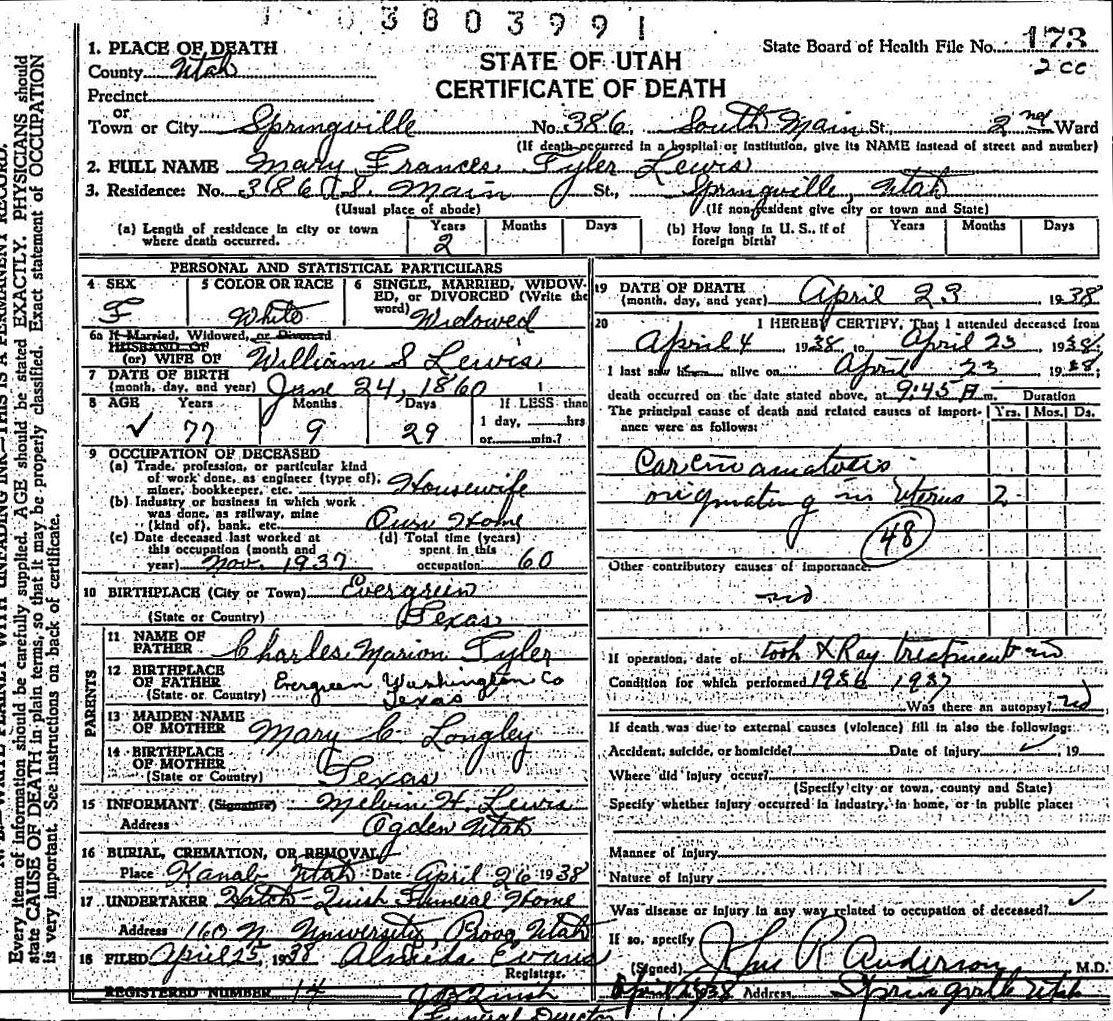 3803991
1. PLACE OF DEATH
County Utah
Precinct
or
Town or City Springville No. 386 South Main St., 2nd Ward
(If death occurred in a hospital or institution, give its NAME instead of street and number)
STATE OF UTAH
CERTIFICATE OF DEATH
State Board of Health File No. 173
2 cc
2. FULL NAME Mary Frances Tyler Lewis
3. Residence: No. 386 S. Main St., Springville, Utah
(Usual place of abode) (If non-resident give city or town and State)
(a) Length of residence in city or town where death occurred. Years 2 Months Days
(b) How long in U. S., if of foreign birth? Years Months Days
PERSONAL AND STATISTICAL PARTICULARS
4 SEX F
5 COLOR OR RACE White
6 SINGLE, MARRIED, WIDOWED, or DIVORCED (Write the word) Widowed
6a If Married, Widowed, or Divorced
HUSBAND OF
(or) WIFE OF William S Lewis
7 DATE OF BIRTH
(month, day, and year) June 24, 1860
8 AGE Years 77 Months 9 Days 29 If LESS than 1 day, hrs or min.?
9 OCCUPATION OF DECEASED
(a) Trade, profession, or particular kind
of work done, as engineer (type of),
miner, bookkeeper, etc. Housewife
(b) Industry or business in which work
was done, as railway, mine
(kind of), bank, etc. Own Home
(c) Date deceased last worked at
this occupation (month and
year) Nov. 1937
(d) Total time (years)
spent in this
occupation 60
10 BIRTHPLACE (City or Town) Evergreen
(State or Country) Texas
PARENTS
11 NAME OF
FATHER Charles Marion Tyler
12 BIRTHPLACE
OF FATHER Evergreen Washington Co
(State or Country) Texas
13 MAIDEN NAME
OF MOTHER Mary C Longley
14 BIRTHPLACE
OF MOTHER
(State or Country) Texas
15 INFORMANT (Signature) Melvin H. Lewis
Address Ogden Utah
16 BURIAL, CREMATION, OR REMOVAL
Place Kanab Utah Date April 26 1938
17 UNDERTAKER Funeral Home
Address 160 N. University, Provo Utah
18 FILED April 25, 1938 Almeda Evans
Registrar.
REGISTERED NUMBER 14
Funeral Director
19 DATE OF DEATH
(month, day, and year) April 23 1938
20 I HEREBY CERTIFY, That I attended deceased from
April 4 1938, to April 23 1938
I last saw alive on April 23 1938;
death occurred on the date stated above, at 9:45 A m. Duration
The principal cause of death and related causes of importance were as follows: Yrs. Mos. Ds.
Carcinamatosis
originating in Uterus 2
48
Other contributory causes of importance:
no
If operation, date of took X Ray treatment in
Condition for which performed 1936 1937
Was there an autopsy? no
If death was due to external causes (violence) fill in also the following:
Accident, suicide, or homicide? Date of Injury , 19
Where did injury occur?
(Specify city or town, county and State)
Specify whether injury occurred in industry, in home, or in public place:
Manner of Injury
Nature of Injury
Was disease or injury in any way related to occupation of deceased?
If so, specify
(Signed) R Anderson M.D.
1938 Address Springville Utah
Every item of information should be carefully supplied. AGE should be stated EXACTLY. PHYSICIANS should
state CAUSE OF DEATH in plain terms, so that it may be properly classified. Exact statement of OCCUPATION
is very important. See instructions on back of certificate.